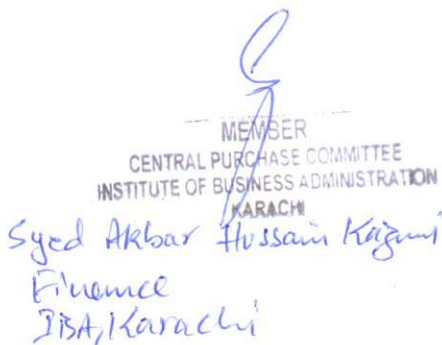 MEMBER
CENTRAL PURCHASE COMMITTEE
INSTITUTE OF BUSINESS ADMINISTRATION
KARACHI
Syed Akbar Hussain Kazmi
Finance
IBA, Karachi